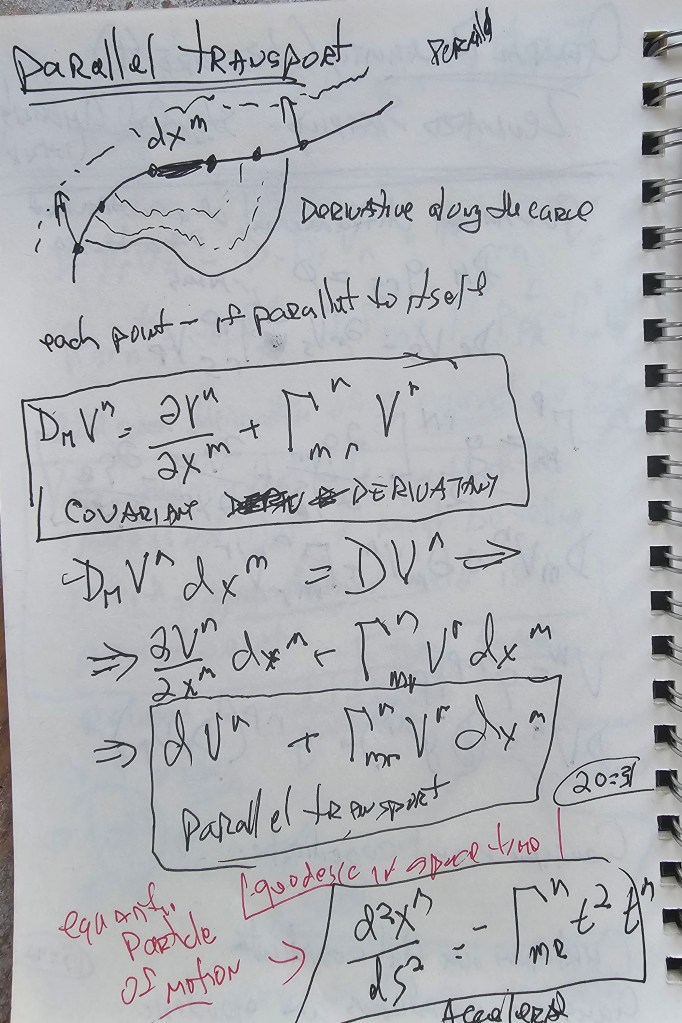 Parallel TRANSPORT
dx^m
DERIVATIVE along the curve
each point - if parallel to itself
D_M V^n = ∂V^n/∂x^m + Γ^n_{mr} V^r
COVARIANT DERIVATANY
D_M V^n dx^m = DV^n ⇒
⇒ ∂V^n/∂x^m dx^m + Γ^n_{mr} V^r dx^m
⇒ dV^n + Γ^n_{mr} V^r dx^m
Parallel TRANSPORT
geodesic in space time
Particle
OF MOTION →
d²x^n/ds² = - Γ^n_{mr} t^2 t^n